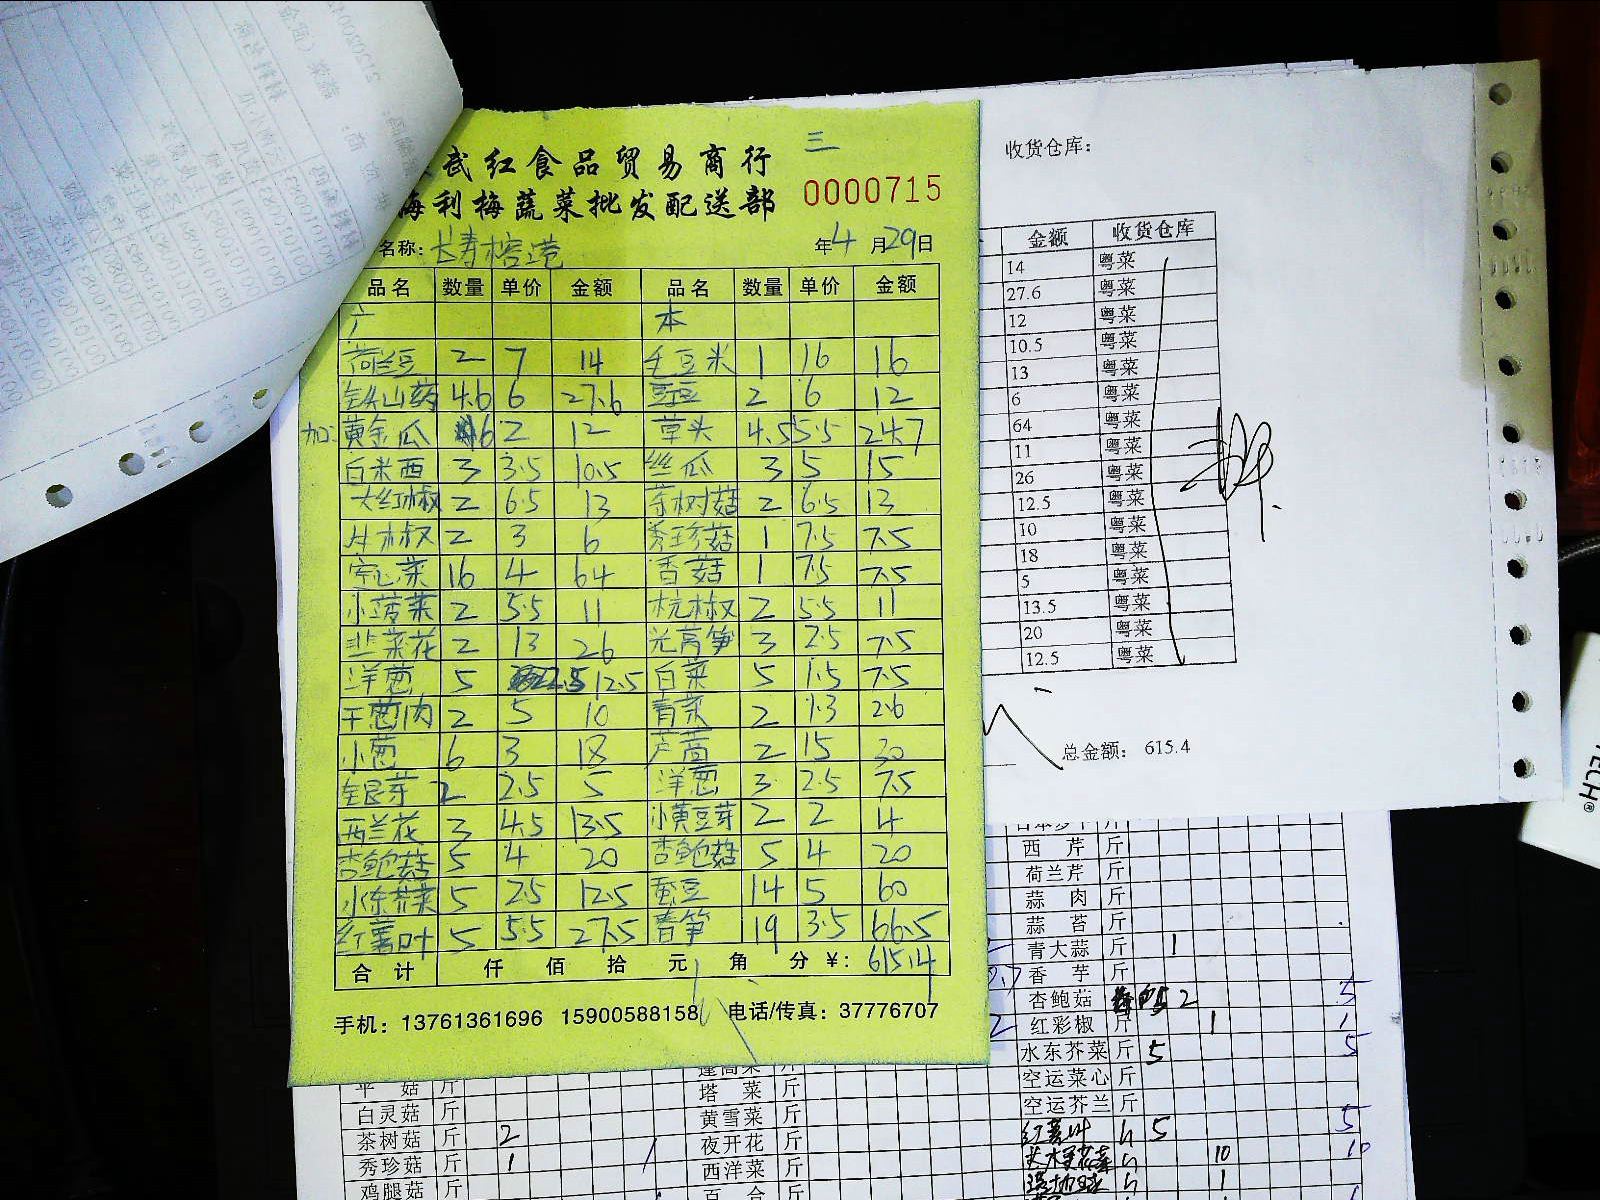 武红食品贸易商行
海利梅蔬菜批发配送部
三
0000715
名称: 长寿榕港
年4月29日
品名 数量 单价 金额 品名 数量 单价 金额
广 本
荷兰豆 2 7 14 毛豆米 1 16 16
铁山药 4.6 6 27.6 豆 2 6 12
加: 黄金瓜 6 2 12 草头 4.5 5.5 24.7
白米西 3 3.5 10.5 丝瓜 3 5 15
大红椒 2 6.5 13 茶树菇 2 6.5 13
椒 2 3 6 秀珍菇 1 7.5 7.5
空心菜 16 4 64 香菇 1 7.5 7.5
小菠菜 2 5.5 11 杭椒 2 5.5 11
韭菜花 2 13 26 光莴笋 3 2.5 7.5
洋葱 5 2.5 12.5 白菜 5 1.5 7.5
干葱肉 2 5 10 青菜 2 1.3 2.6
小葱 6 3 18 芦蒿 2 15 30
银芽 2 2.5 5 洋葱 3 2.5 7.5
西兰花 3 4.5 13.5 小黄豆芽 2 2 4
杏鲍菇 5 4 20 杏鲍菇 5 4 20
水东芥菜 5 2.5 12.5 蚕豆 14 5 60
红薯叶 5 5.5 27.5 青笋 19 3.5 66.5
合计 仟 佰 拾 元 角 分 ¥: 615.4
手机: 13761361696 15900588158 电话/传真: 37776707
收货仓库:
金额 收货仓库
14 粤菜
27.6 粤菜
12 粤菜
10.5 粤菜
13 粤菜
6 粤菜
64 粤菜
11 粤菜
26 粤菜
12.5 粤菜
10 粤菜
18 粤菜
5 粤菜
13.5 粤菜
20 粤菜
12.5 粤菜
总金额: 615.4
西芹 斤
荷兰芹 斤
蒜肉 斤
蒜苔 斤
青大蒜 斤 1
香芋 斤
杏鲍菇 5 2 5
红彩椒 斤 1 1
水东芥菜 斤 5 5
空运菜心 斤
空运芥兰 斤
红薯叶 5 5
10 10
1
平菇 斤
白灵菇 斤
茶树菇 斤 2
秀珍菇 斤 1
鸡腿菇 斤
蓬蒿菜 斤
塔菜 斤
黄雪菜 斤
夜开花 斤
西洋菜 斤
百合 斤
TECH®